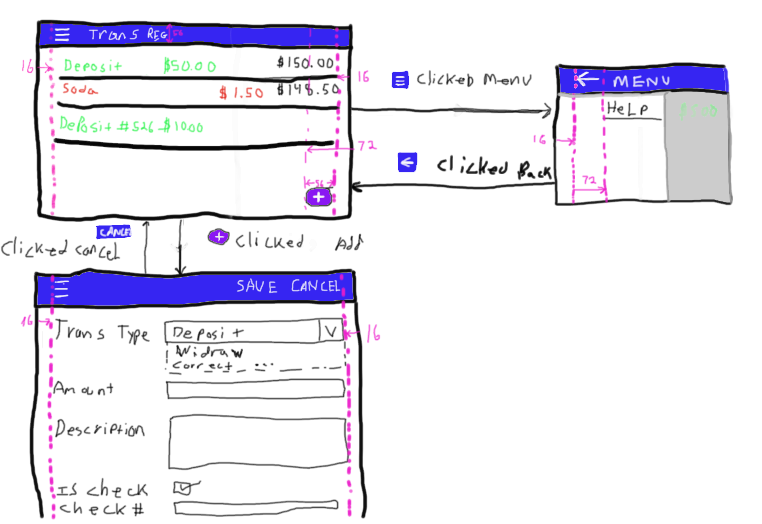 Trans REG 56
Deposit $50.00 $150.00
16 16
Soda $1.50 $148.50
Deposit #526 $10.00
72
56
+
Clicked Menu
MENU
HeLP
16
72
Clicked Back
CANCEL
Clicked cancel
+ Clicked Add
SAVE CANCEL
16 16
Trans Type Deposit V
Widraw
Correct ...
Amount
Description
Is check
check #